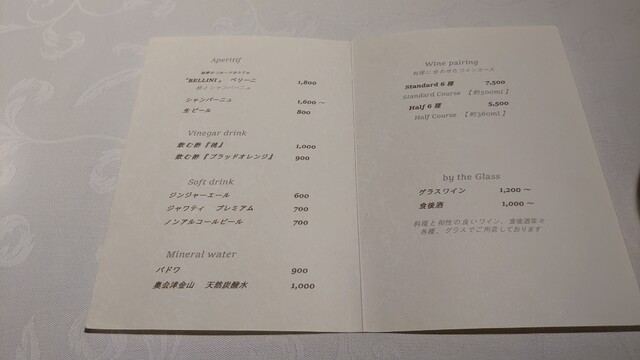 Aperitif
『BELLINI』 ベリーニ 1,800
桃とシャンパーニュ
シャンパーニュ 1,600～
生ビール 800
Vinegar drink
飲む酢『桃』 1,000
飲む酢『ブラッドオレンジ』 900
Soft drink
ジンジャーエール 600
ジャワティ プレミアム 700
ノンアルコールビール 700
Mineral water
バドワ 900
奥会津金山 天然炭酸水 1,000
Wine pairing
料理に合わせたワインコース
Standard 6種 7,500
Standard Course 【約500ml】
Half 6種 5,500
Half Course 【約360ml】
by the Glass
グラスワイン 1,200～
食後酒 1,000～
料理と相性の良いワイン、食後酒等々
各種、グラスでご用意しております